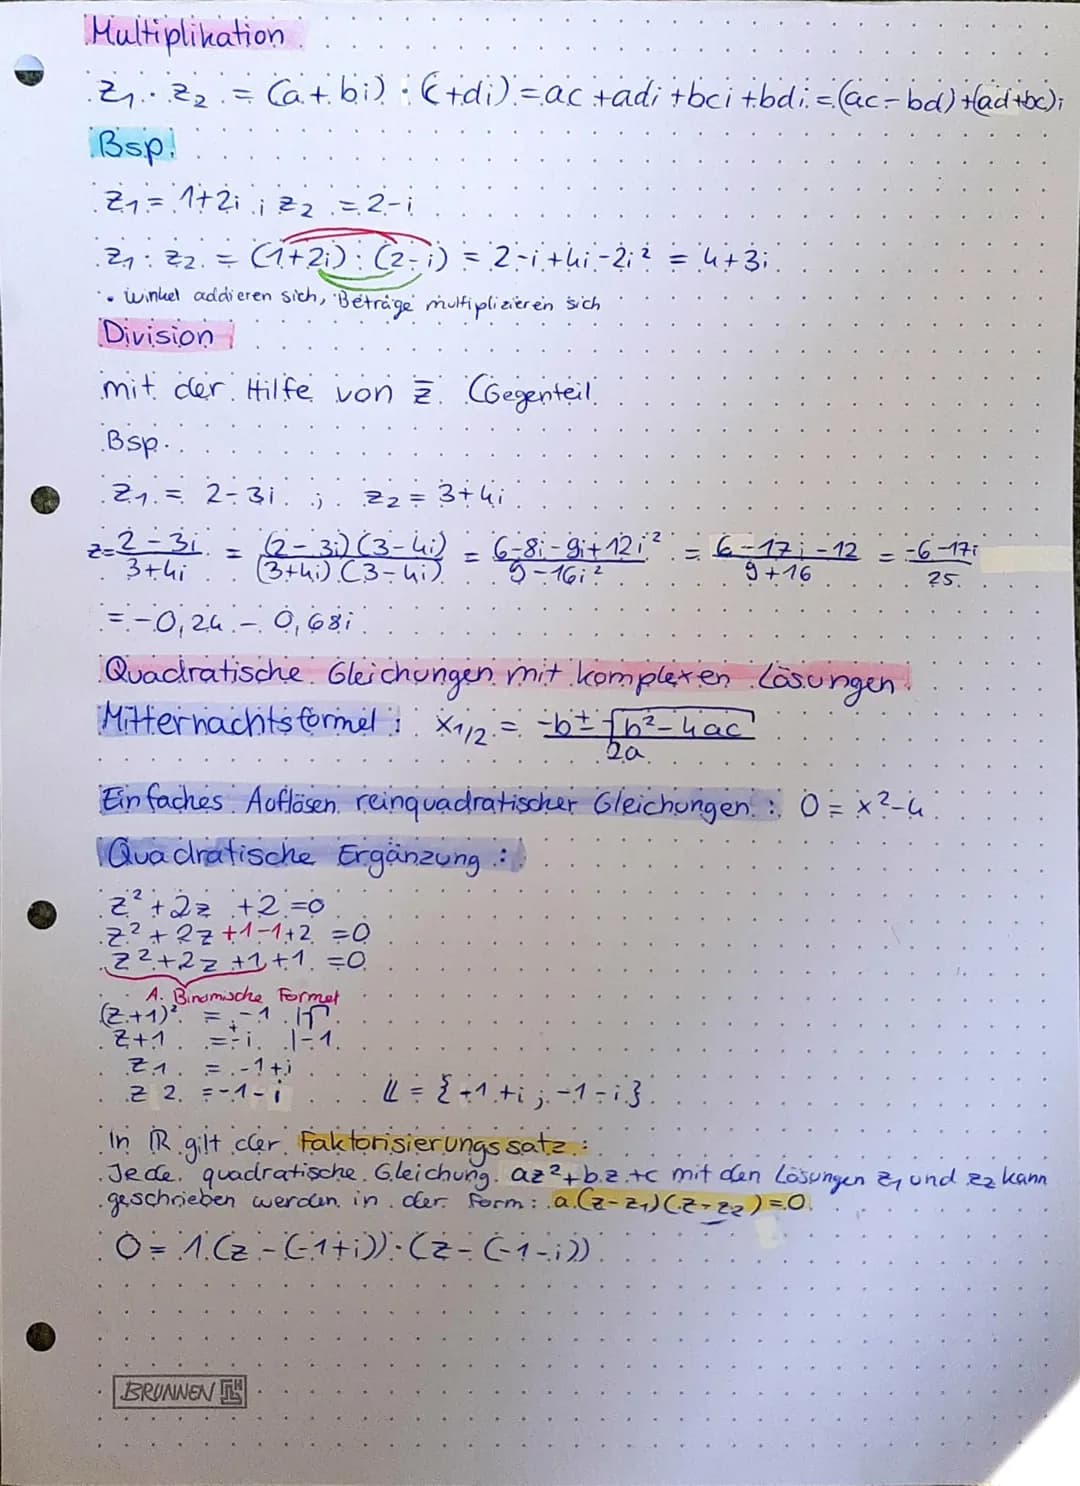 Multiplikation
z₁ · z₂ = (a + bi) · (c+di) = ac + adi + bci + bdi = (ac - bd) + (ad+bc)i
Bsp.
z₁ = 1+2i ; z₂ = 2-i
z₁ · z₂ = (1+2i) · (2-i) = 2-i+4i-2i² = 4+3i
• Winkel addieren sich, Beträge multiplizieren sich
Division
mit der Hilfe von z̅ (Gegenteil
Bsp.
z₁ = 2-3i ; z₂ = 3+4i
z = (2-3i)/(3+4i) = ((2-3i)(3-4i))/((3+4i)(3-4i)) = (6-8i-9i+12i²)/(9-16i²) = (6-17i-12)/(9+16) = (-6-17i)/25
= -0,24 - 0,68i
Quadratische Gleichungen mit komplexen Lösungen
Mitternachtsformel : x₁/₂ = (-b ± √(b²-4ac))/(2a)
Einfaches Auflösen reinquadratischer Gleichungen : 0 = x²-4
Quadratische Ergänzung :
z² + 2z + 2 = 0
z² + 2z +1-1+2 = 0
z² + 2z +1+1 = 0
1. Binomische Formel
(z+1)² = -1 |√
z+1 = ±i |-1
z1 = -1+i
z2 = -1-i 𝕃 = {-1+i ; -1-i}
In ℝ gilt der Faktorisierungssatz :
Jede quadratische Gleichung az²+bz+c mit den Lösungen z₁ und z₂ kann
geschrieben werden in der Form : a(z-z₁)(z-z₂)=0
0 = 1(z-(-1+i))·(z-(-1-i))
BRUNNEN